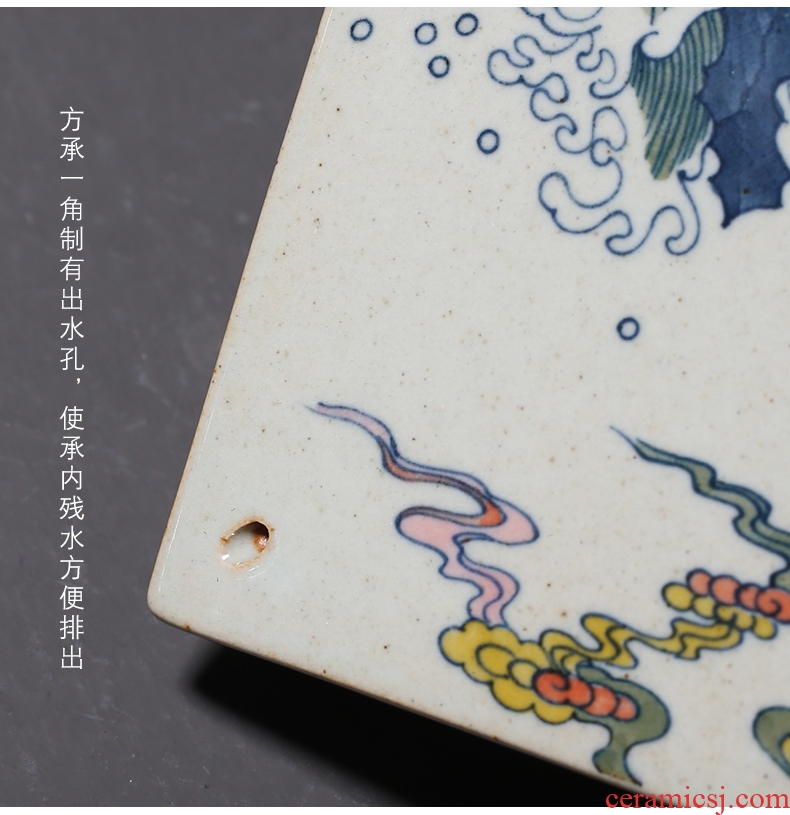 方承一角制有出水孔，使承内残水方便排出
ceramicsj.com